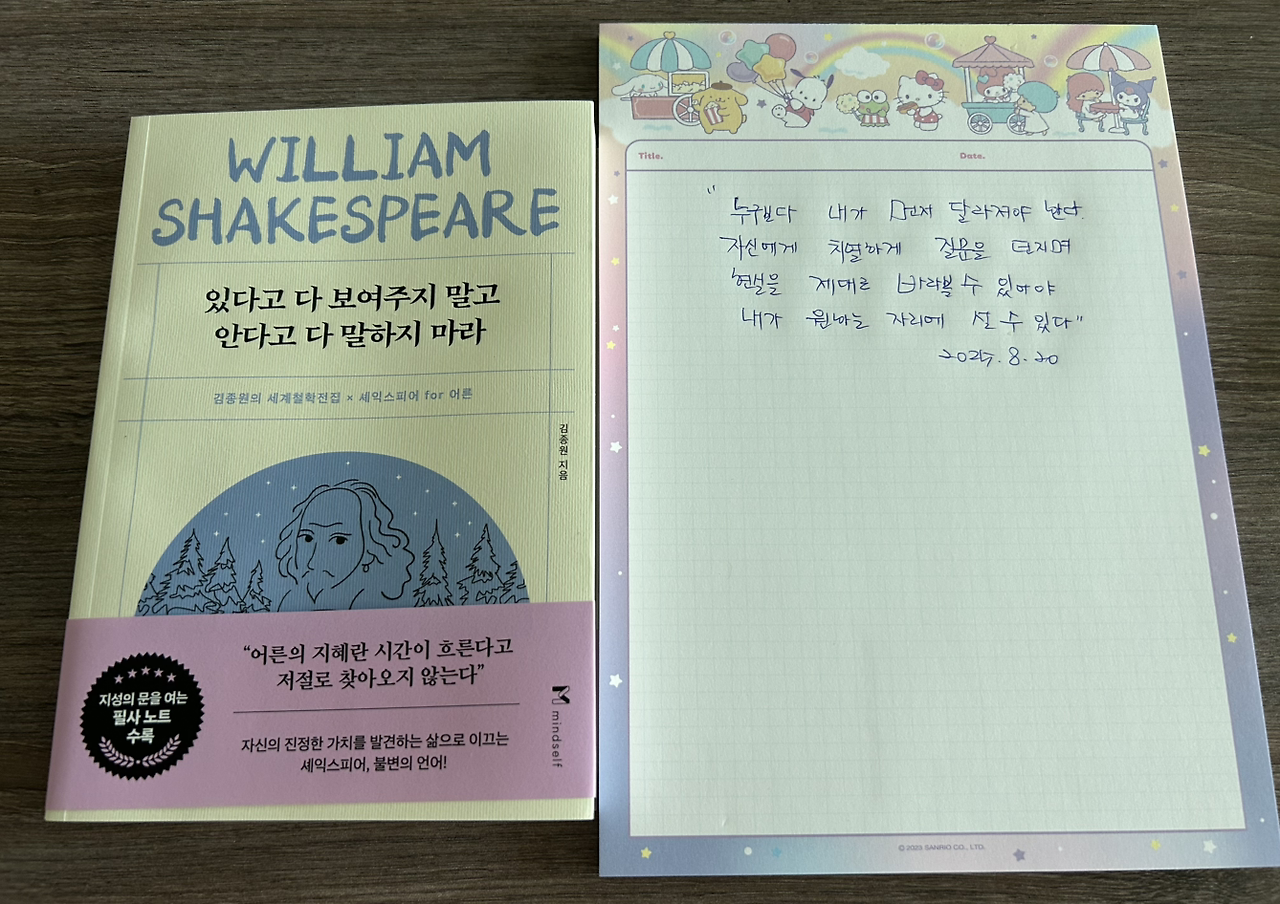 WILLIAM
SHAKESPEARE
있다고 다 보여주지 말고
안다고 다 말하지 마라
김종원의 세계철학전집 × 셰익스피어 for 어른
김종원 지음
“어른의 지혜란 시간이 흐른다고
저절로 찾아오지 않는다”
지성의 문을 여는
필사 노트
수록
자신의 진정한 가치를 발견하는 삶으로 이끄는
셰익스피어, 불변의 언어!
mindself
Title.
Date.
"누구보다 내가 먼저 달라져야 한다.
자신에게 치열하게 질문을 던지며
현실을 제대로 바라볼 수 있어야
내가 원하는 자리에 설 수 있다"
2025. 8. 20
© 2025 SANRIO CO., LTD.